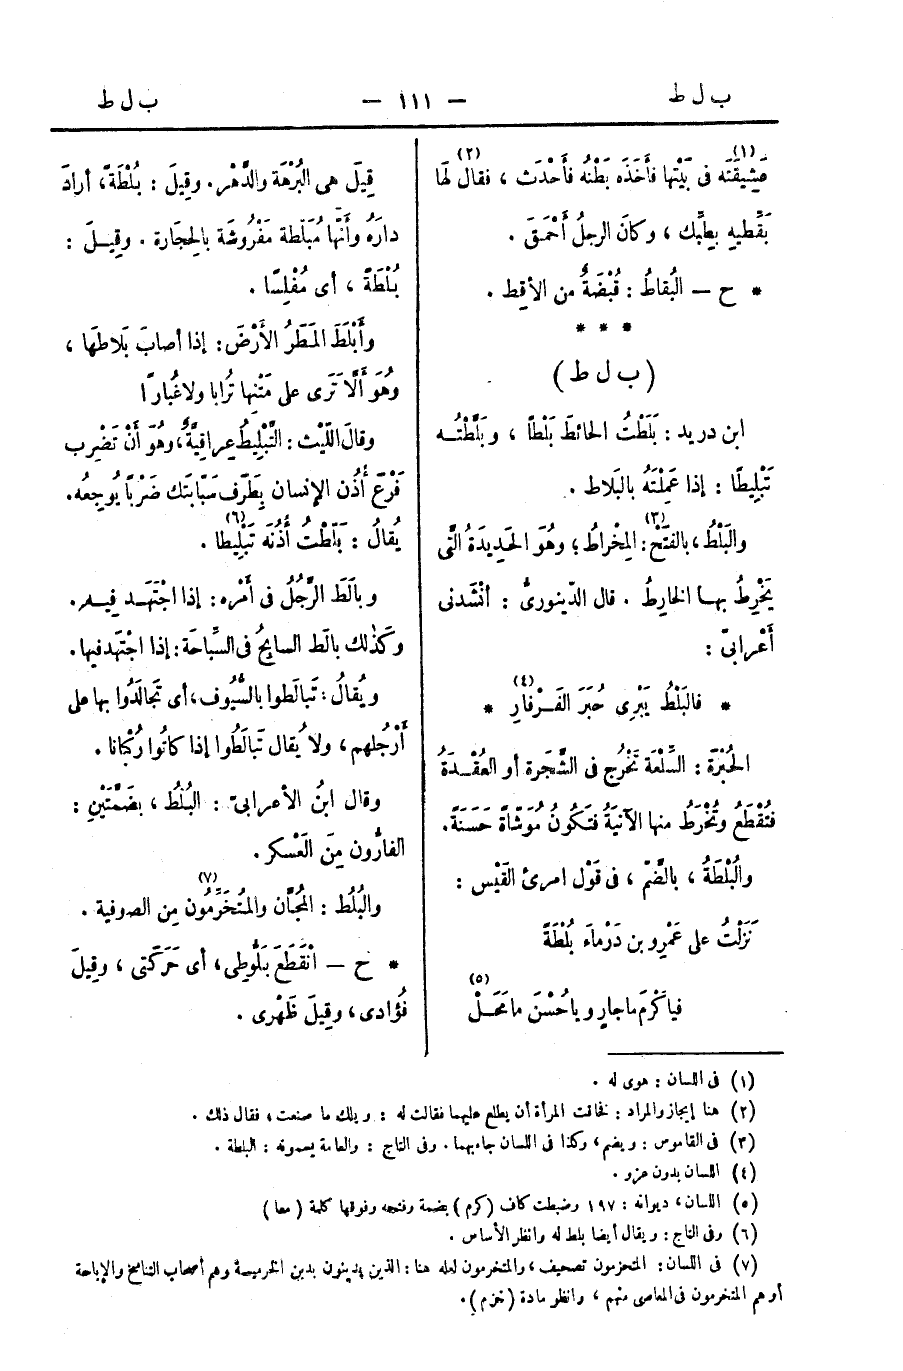 ب ل ط
— ١١١ —
ب ل ط
عَشِيقَتَه (١) فى بَيْتها فأَخَذَه بَطْنُه فأَحْدَث ، فقال (٢) لها
بَقِّطيهِ بِطِبِّك ، وكانَ الرجلُ أَحْمَقَ .
* ح — البُقاطُ : قُبْضَةٌ من الأقط .
* * *
( ب ل ط )
ابن دريد : بَلَطْتُ الحائطَ بَلْطاً ، وبَلَّطْتُــه
تَبْلِيطًا : إذا عَمِلْتَهُ بالبَلاط .
والبَلْطُ ، بالفَتْح (٣): المِخْراطُ ؛ وهُوَ الحَدِيدَةُ الَّتى
يَخْرِطُ بهـا الخارِطُ . قال الدِّينورىُّ : أنْشَدنى
أَعْرابىّ :
* فالبَلْطُ يَبْرِى حُبَرَ الفَـرْفارِ (٤) *
الحُبْرَة : السِّلْعَة تَخْرُج فى الشَّجَرة أو العُقْـدَةُ
فتُقْطَعُ وتُخْرَطُ منها الآنيَةُ فتَكونُ مُوَشّاةً حَسَنَةً .
والبُلْطَةُ ، بالضَّمّ ، فى قَوْل امرئ القَيْس :
نَزَلْتُ على عَمْرِو بن دَرْماءَ بُلْطَةً
فيا كَرْمَ ما جارٍ ويا حُسْنَ ما مَحَـلْ (٥)
قيلَ هى البُرْهَة والدَّهْر . وقيلَ : بُلْطَةً ، أرادَ
دارَهُ وأنَّها مُبَلَّطة مَفْرُوشَة بالحِجَارة . وقِيـلَ :
بُلْطَةً ، أى مُفْلِسًا .
وأَبْلَطَ المَطَرُ الأَرْضَ : إذا أصابَ بَلاطَها ،
وهُوَ أَلّا تَرَى على مَتْنِها تُرابا ولا غُبارًا
وقالَ اللَّيْث : التَّبْلِيطُ عِراقِيَّةٌ ، وهُوَ أَنْ تَضْرِب
فَرْعَ أُذُن الإنْسان بِطَرَف سَبّابَتك ضَرْباً يُوجِعُه .
يُقالُ : بَلَّطْتُ أُذُنَه (٦) تَبْلِيطا .
وبالَطَ الرَّجُلُ فى أَمْره : إذا اجْتَهَـد فِيـه .
وكَذلك بالَط السابحُ فى السِّباحَة : إذا اجْتَهَد فيها .
ويُقالُ : تَبالَطوا بالسُّيُوف ، أى تَجالَدُوا بها على
أَرْجُلهم ، ولا يُقال تَبالَطُوا إذا كانُوا رُكْبانا .
وقال ابنُ الأعرابىّ : البُلُط ، بضَمَّتَيْن :
الفارُّون مِنَ العَسْكر .
والبُلُط : المُجّان والمُتَخَرِّمُون (٧) مِن الصوفية .
* ح — انْقَطَعَ بَلُّوطِى ، أى حَرَكَتى ، وقيلَ
فُؤادى ، وقِيلَ ظَهْرِى .
(١) فى اللسان : هوى له .
(٢) هنا إيجاز والمراد : فخافت المرأة أن يطلع عليهما فقالت له : ويلك ما صنعت ، فقال ذلك .
(٣) فى القاموس : ويضم ، وكذا فى اللسان جاء بهما . وفى التاج : والعامة يسمونه : البلطة .
(٤) اللسان بدون عزو .
(٥) اللسان ، ديوانه : ١٩٧ وضبطت كاف ( كرم ) بضمة وفتحه وفوقها كلمة ( معا )
(٦) وفى التاج : ويقال أيضا بلط له وانظر الأساس .
(٧) فى اللسان : المتحزمون تصحيف ، والمتخرمون لعله هنا : الذين يدينون بدين الخرمية وهم أصحاب التناسخ والإباحة
أو هم المتخرمون فى المعاصى منهم ، وانظر مادة ( خرم ) .